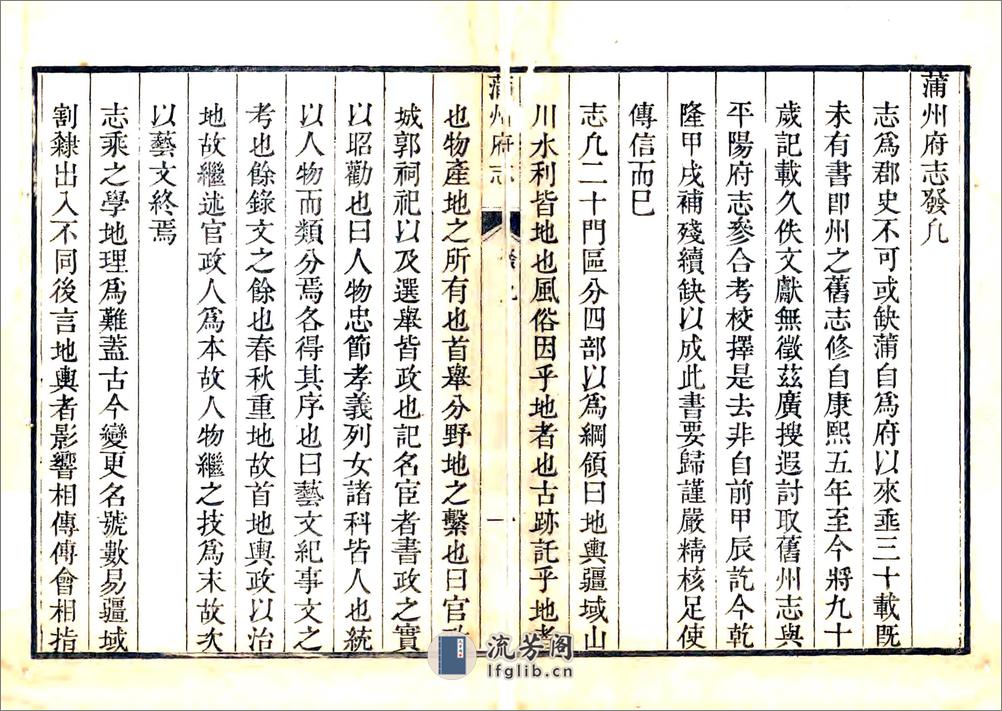 蒲州府志發凡
志爲郡史不可或缺蒲自爲府以來垂三十載既
未有書即州之舊志修自康熙五年至今將九十
歲記載久佚文獻無徵茲廣搜遐討取舊州志與
平陽府志參合考校擇是去非自前甲辰訖今乾
隆甲戌補殘續缺以成此書要歸謹嚴精核足使
傳信而已
志凡二十門區分四部以爲綱領曰地輿疆域山
川水利皆地也風俗因乎地者也古跡託乎地者
蒲州府志
發凡
一
也物產地之所有也首舉分野地之繫也曰官政
城郭祠祀以及選舉皆政也記名宦者書政之實
以昭勸也曰人物忠節孝義列女諸科皆人也統
以人物而類分焉各得其序也曰藝文紀事文之
考也餘錄文之餘也春秋重地故首地輿政以治
地故繼述官政人爲本故人物繼之技爲末故次
以藝文終焉
志乘之學地理爲難蓋古今變更名號數易疆域
割隸出入不同後言地輿者影響相傳傳會相指
流芳阁
lfglib.cn